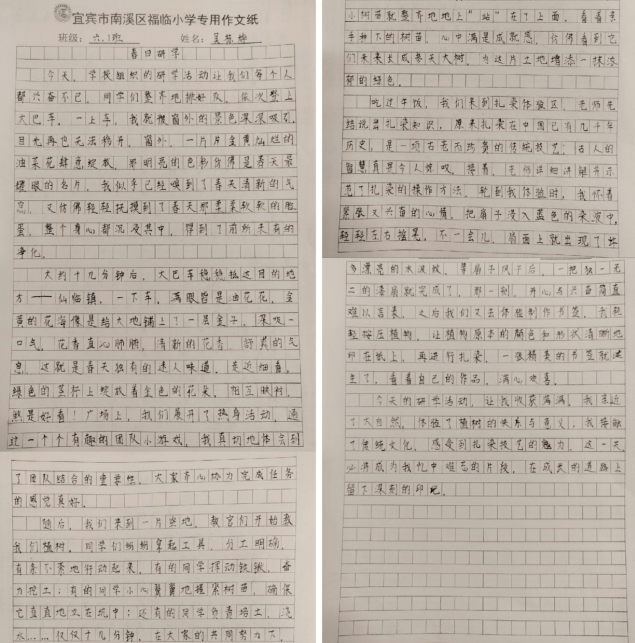 宜宾市南溪区福临小学专用作文纸
班级：六.1班 姓名：
春日研学
今天，学校组织的研学活动让我们每个人
都兴奋不已。同学们整齐地排好队，依次登上
大巴车。一上车，我就被窗外的景色深深吸引，
目光再也无法移开。窗外，一片片金黄灿烂的
油菜花肆意绽放，那明亮的色彩仿佛是春天最
耀眼的名片。我似乎已经嗅到了春天清新的气
息，又仿佛轻轻抚摸到了春天那柔柔软软的脸
蛋。整个身心都沉浸其中，得到了前所未有的
净化。
大约十几分钟后，大巴车稳稳抵达目的地
方——仙临镇。一下车，满眼皆是油花花，金
黄的花海像是给大地铺上了一层金子。深吸一
口气，花香直沁肺腑，清新的花香，舒爽的气
息，这就是春天独有的迷人味道。走近细看，
绿色的茎秆上绽放着金色的花朵，相互映衬，
煞是好看！广场上，我们展开了热身活动，通
过一个个有趣的团队小游戏，我真切地体会到
了团队结合的重要性，大家齐心协力完成任务
的感觉真好。
随后，我们来到一片空地，教官们开始教
我们植树。同学们纷纷拿起工具，分工明确，
有条不紊地行动起来，有的同学挥动铁锹，奋
力挖土；有的同学小心翼翼地握紧树苗，确保
它直直地立在坑中；还有的同学负责培土、浇
水……仅仅十几分钟，在大家的共同努力下，
小树苗就整齐地地上“站”在了上面。看着亲
手种下的树苗，心中满是成就感，仿佛看到它
们未来长成参天大树，为这片土地增添一抹浓
郁的绿色。
吃过午饭，我们来到扎染体验区，老师先
给说出扎染知识，原来扎染在中国已有几千年
历史，是一项古老而珍贵的传统技艺，古人的
智慧真是令人惊叹。接着，老师详细讲解并示
范了扎染的操作方法。轮到我体验时，我怀着
紧张又兴奋的心情，把扇子浸入蓝色的染液中，
轻轻左右摇晃，不一会儿，扇面上就出现了许
多漂亮的水波纹，等扇子风干后，一把独一无
二的漆扇就完成了。那一刻，开心与兴奋简直
难以言表。之后我们又去体验制作书签，我轻
轻按压植物，让植物原本的颜色和形状清晰地
印在纸上，再进行扎染，一张精美的书签就诞
生了，看着自己的作品，满心欢喜。
今天的研学活动，让我收获满满。我亲近
了大自然，体验了植树的快乐与意义，我领略
了传统文化，感受到扎染技艺的魅力。这一天
必将成为我忆中难忘的片段，在成长的道路上
留下深刻的印记。